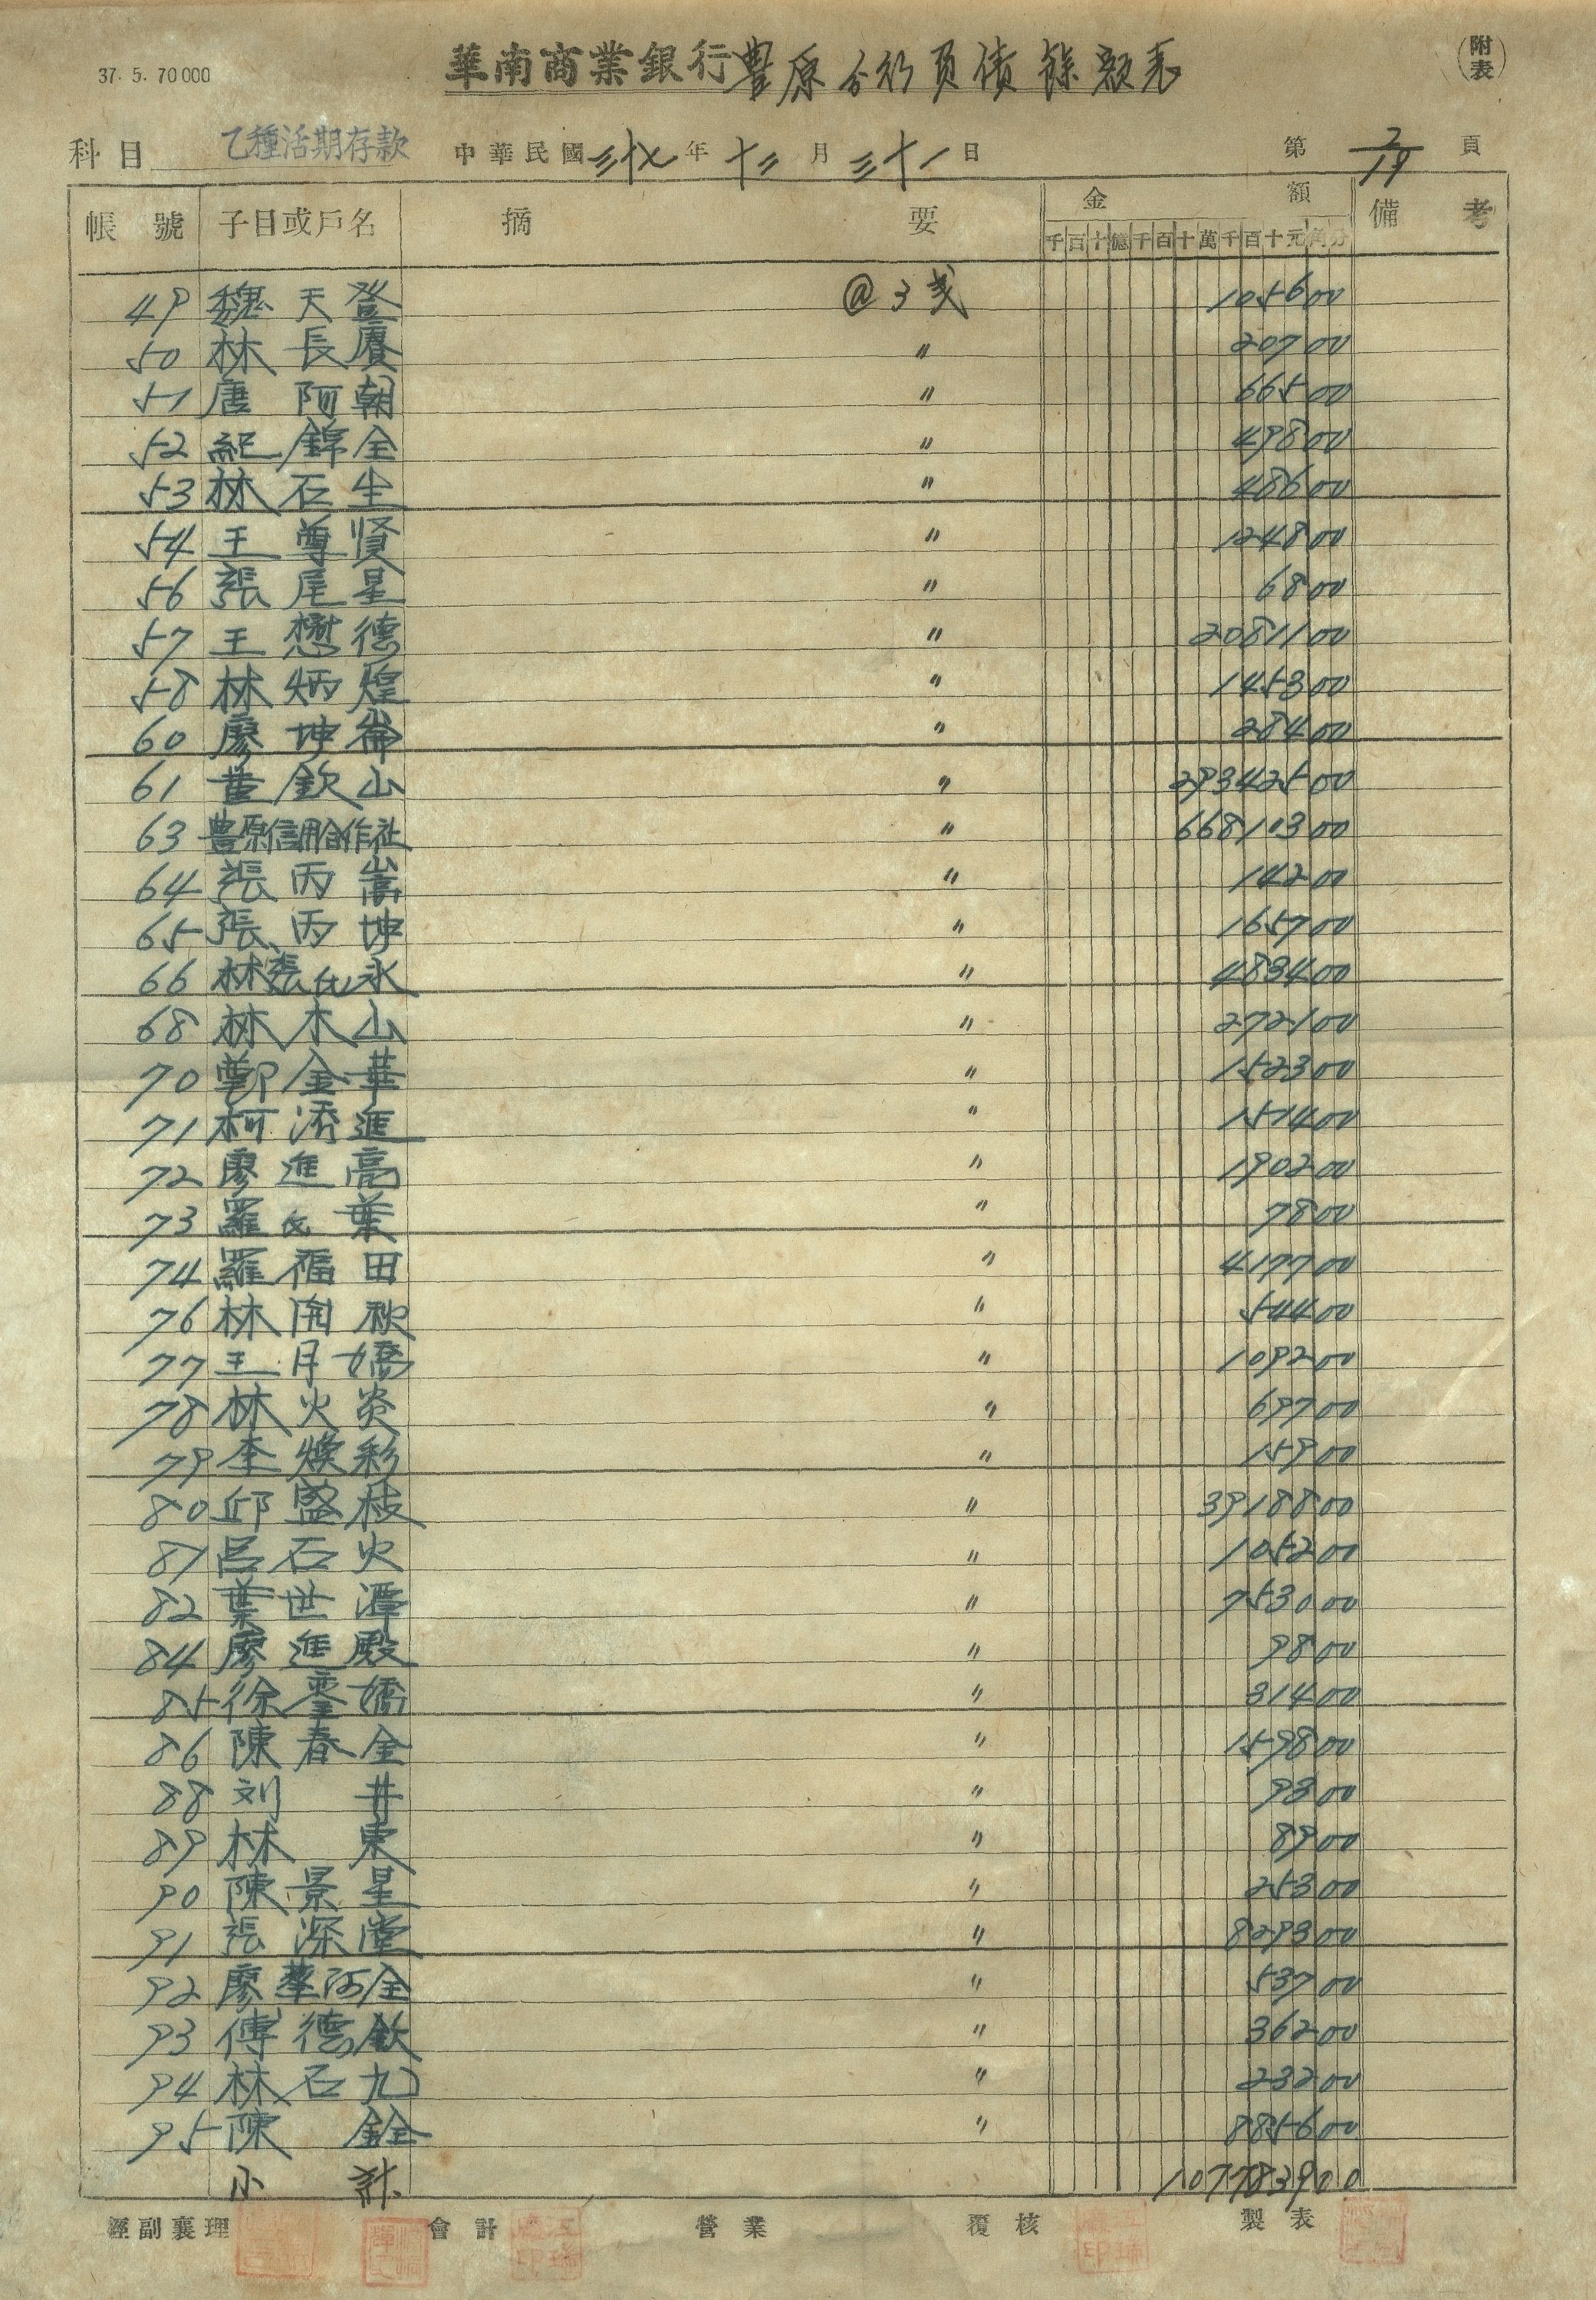 37. 5. 70000
華南商業銀行豐原分行負債餘額表
(附表)
科目 乙種活期存款 中華民國三十七年十二月三十一日 第 2/19 頁
帳號 子目或戶名 摘要 金額 備考
千百十億千百十萬千百十元角分
49 魏天登 @3戋 105600
50 林長賡 〃 20700
51 唐阿朝 〃 66500
52 紀錦全 〃 49800
53 林石生 〃 48600
54 王尊賢 〃 124800
56 張尾星 〃 6800
57 王懋德 〃 2081100
58 林炳煌 〃 145300
60 廖坤崙 〃 28400
61 董欽山 〃 29342500
63 豊原信用合作社 〃 66810300
64 張丙嵩 〃 14200
65 張丙坤 〃 165700
66 林張氏永 〃 483400
68 林木山 〃 272100
70 鄭金華 〃 152300
71 柯添進 〃 151400
72 廖進高 〃 190200
73 羅氏葉 〃 7800
74 羅福田 〃 417700
76 林開秋 〃 54400
77 王月嬌 〃 109200
78 林火炎 〃 69700
79 李煥彩 〃 15900
80 邱盛枝 〃 3918800
81 呂石火 〃 105200
82 葉世潭 〃 753000
84 廖進殿 〃 9800
85 徐嬌 〃 31400
86 陳春金 〃 159800
88 刘井 〃 9300
89 林東 〃 8900
90 陳景星 〃 25300
91 張深堂 〃 829300
92 廖葉阿全 〃 53700
93 傅德欽 〃 36200
94 林石九 〃 23200
95 陳銓 〃 885600
小計 107783900
經副襄理 會計 營業 覆核 製表